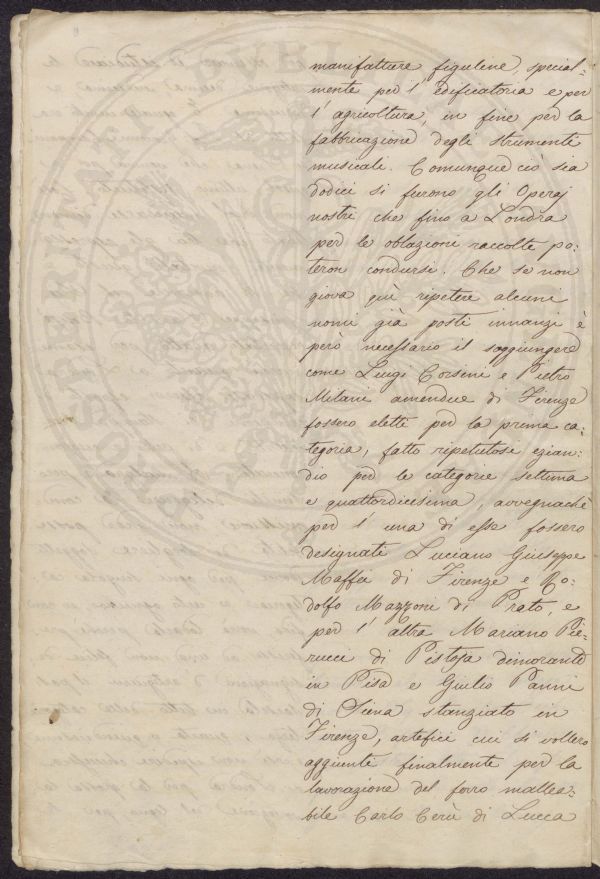 manifatture figuline, special-
mente per l' edificatoria e per
l' agricoltura, in fine per la
fabbricazione degli strumenti
musicali. Comunque ciò sia
dodici si furono gli Operaj
nostri che fino a Londra
per le oblazioni raccolte po:
teron condursi. Che se non
giova quì ripetere alcuni
nomi già posti innanzi è
però necessario il soggiungere
come Luigi Corsini e Pietro
Mitani amendue di Firenze
fossero eletti per la prima ca:
tegoria, fatto ripetutosi ezian:
dio per le categorie settima
e quattordicesima, avvegnachè
per l' una di esse fossero
designati Luciano Giuseppe
Maffei di Firenze e Ro:
dolfo Mazzoni di Prato, e
per l' altra Mariano Pie:
rucci di Pistoja dimorante
in Pisa e Giulio Panni
di Siena stanziato in
Firenze, artefici cui si vollero
aggiunti finalmente per la
lavorazione del ferro mallea:
bile Carlo Cerù di Lucca